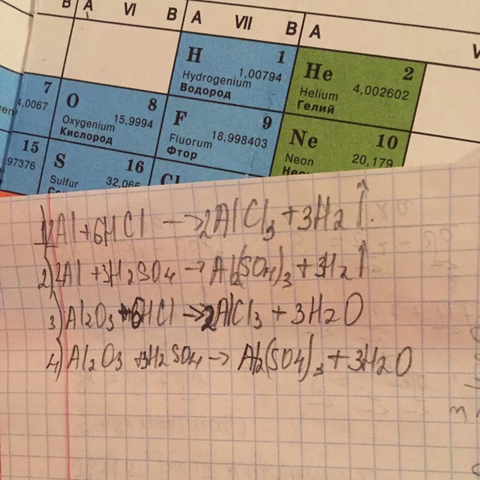 В A VI В A VII В A
H 1
Hydrogenium 1,00794
Водород
He 2
Helium 4,002602
Гелий
7
4,0067
O 8
Oxygenium 15,9994
Кислород
F 9
Fluorum 18,998403
Фтор
Ne 10
Neon 20,179
15
97376
S 16
Sulfur
Cl
1) 2Al + 6HCl → 2AlCl3 + 3H2↑.
2) 2Al + 3H2SO4 → Al2(SO4)3 + 3H2↑
3) Al2O3 + 6HCl → 2AlCl3 + 3H2O
4) Al2O3 + 3H2SO4 → Al2(SO4)3 + 3H2O